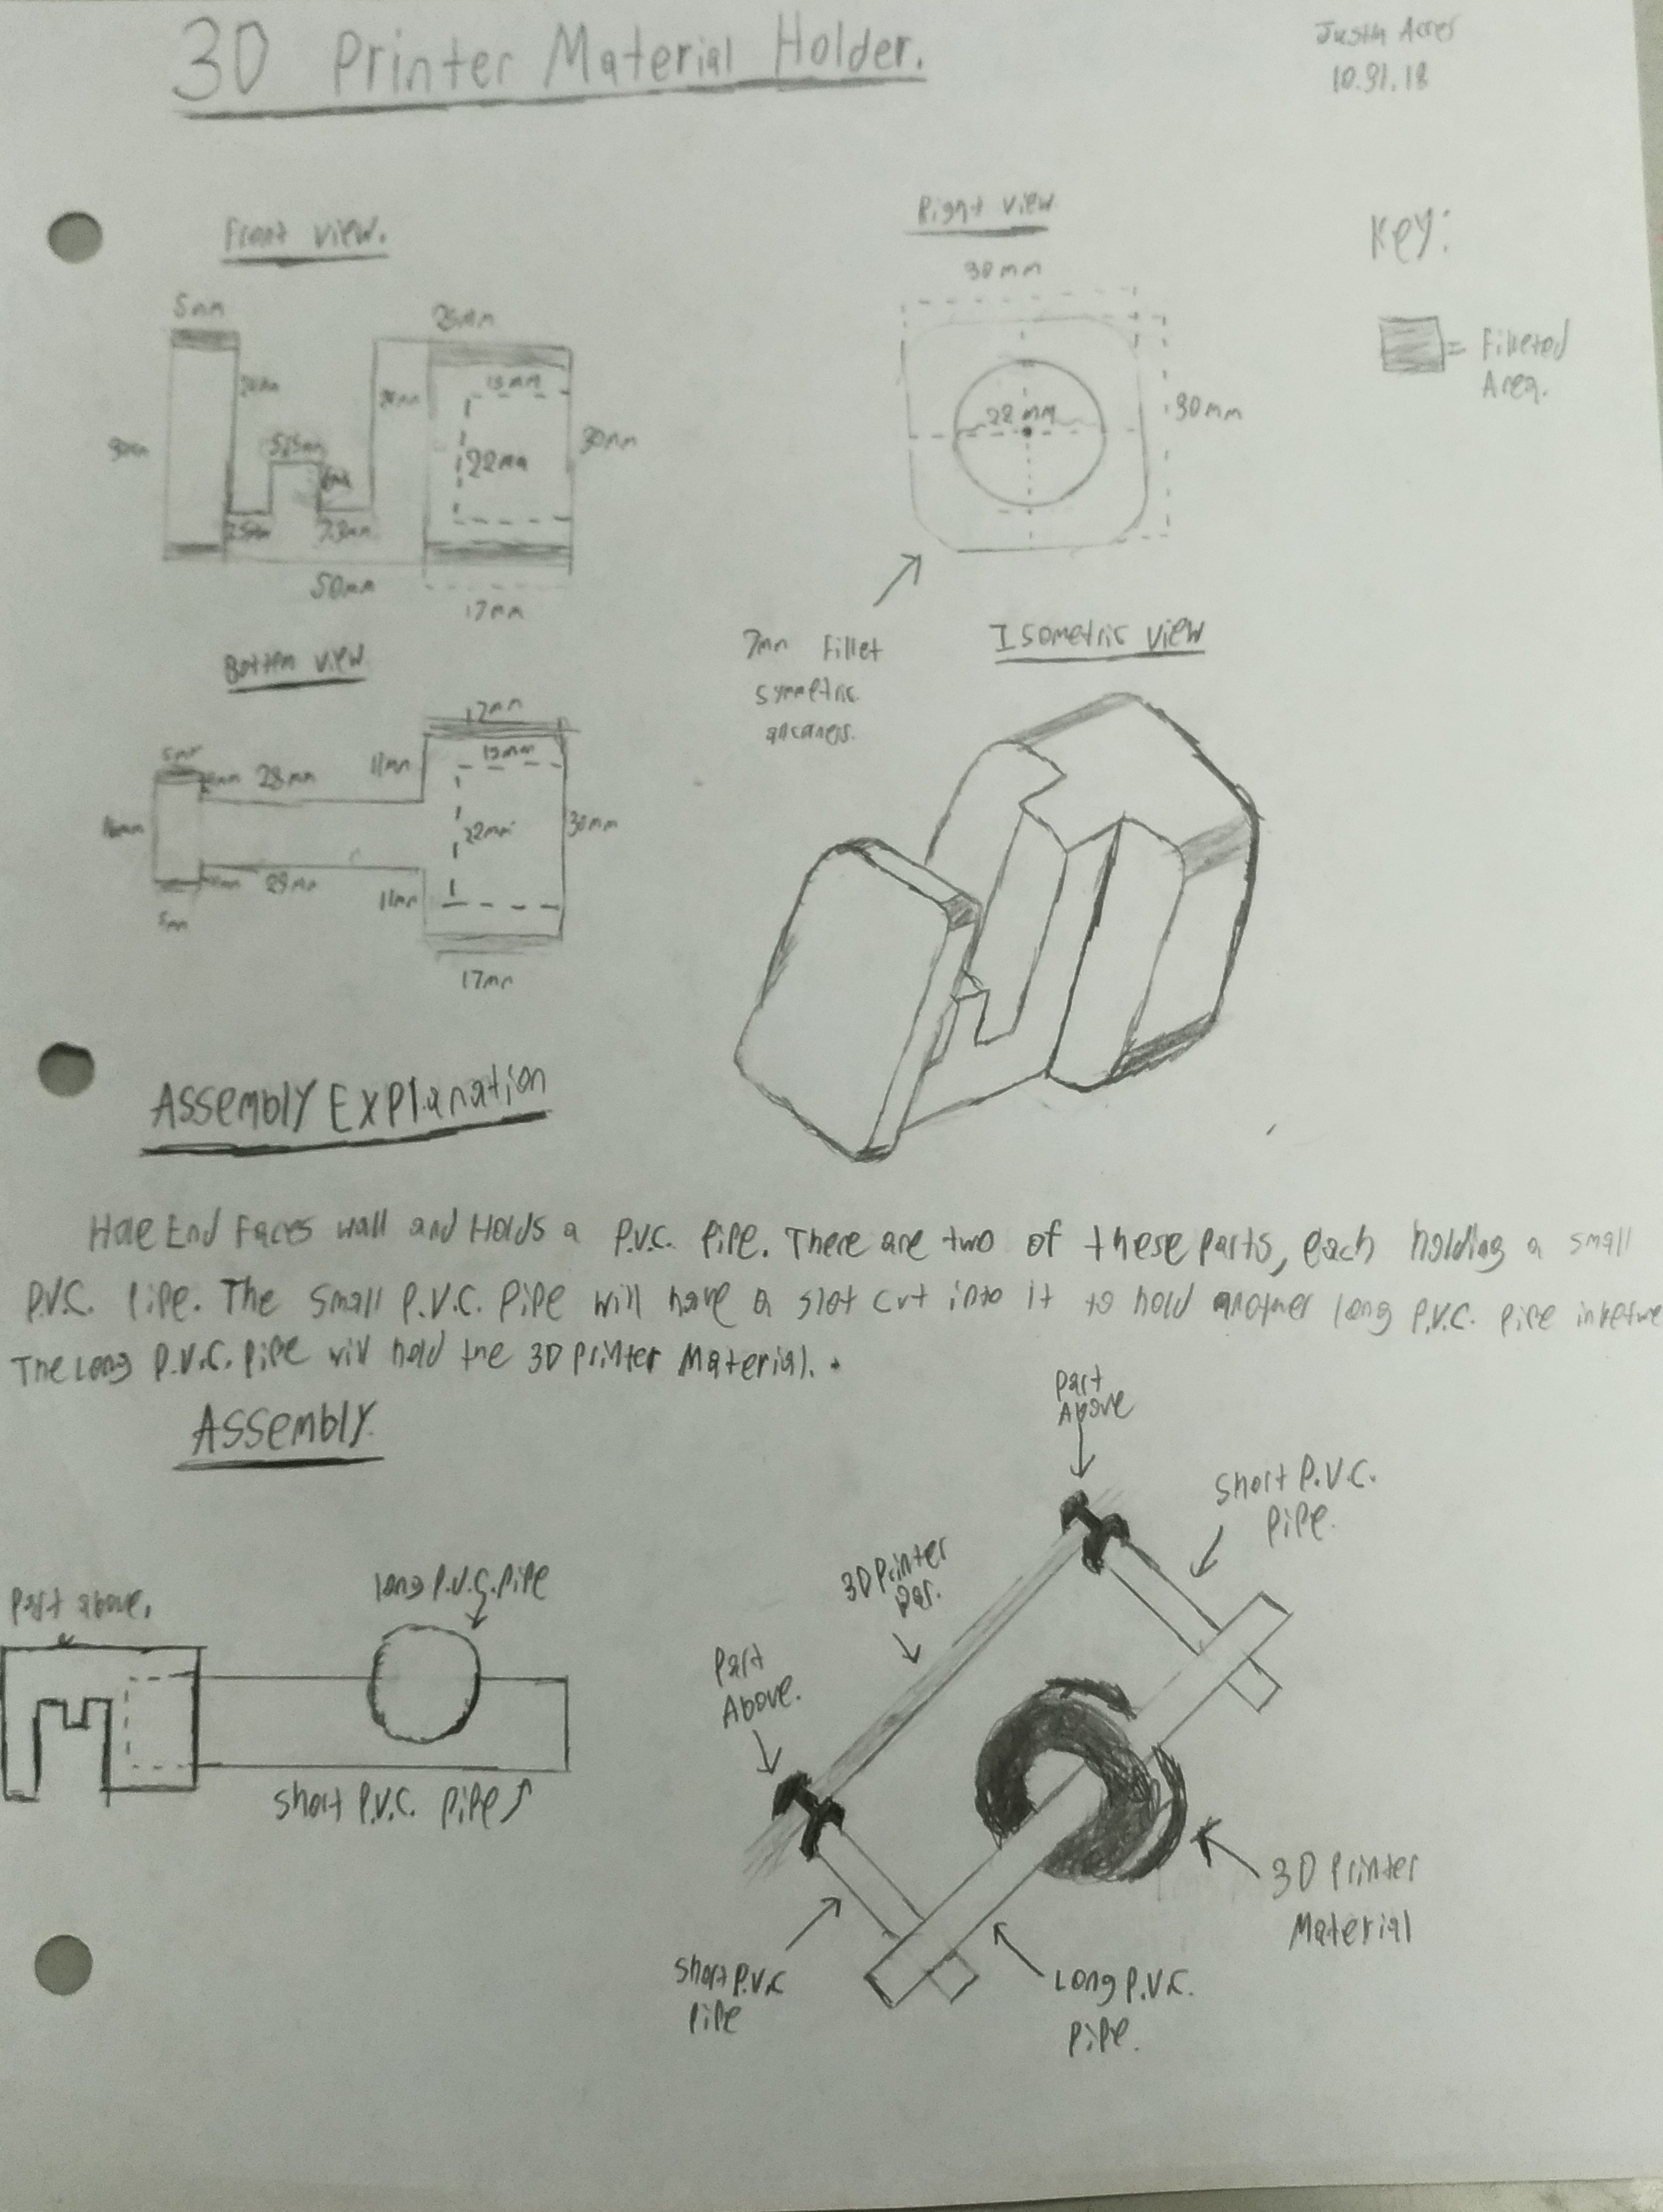 3D Printer Material Holder.
10.31.18
Front view.
5mm
30mm
22mm
50mm
17mm
Right view
30mm
22mm
30mm
7mm Fillet
symmetric
Key:
= Filleted
Area.
Bottem view
17mm
15mm
5mm
28mm
11mm
22mm
30mm
11mm
5mm
17mm
Isometric view
Assembly Explanation
Hole End Faces wall and Holds a P.V.C. Pipe. There are two of these parts, each holding a small
P.V.C. Pipe. The small P.V.C. Pipe will have a slot cut into it to hold another long P.V.C. Pipe
The Long P.V.C. Pipe will hold the 3D printer Material.
Assembly.
Part above.
long P.V.C. Pipe
short P.V.C. Pipe
Part
Above
short P.V.C.
Pipe.
3D Printer
Part
Above.
short P.V.C
Pipe
Long P.V.C.
Pipe.
3D Printer
Material